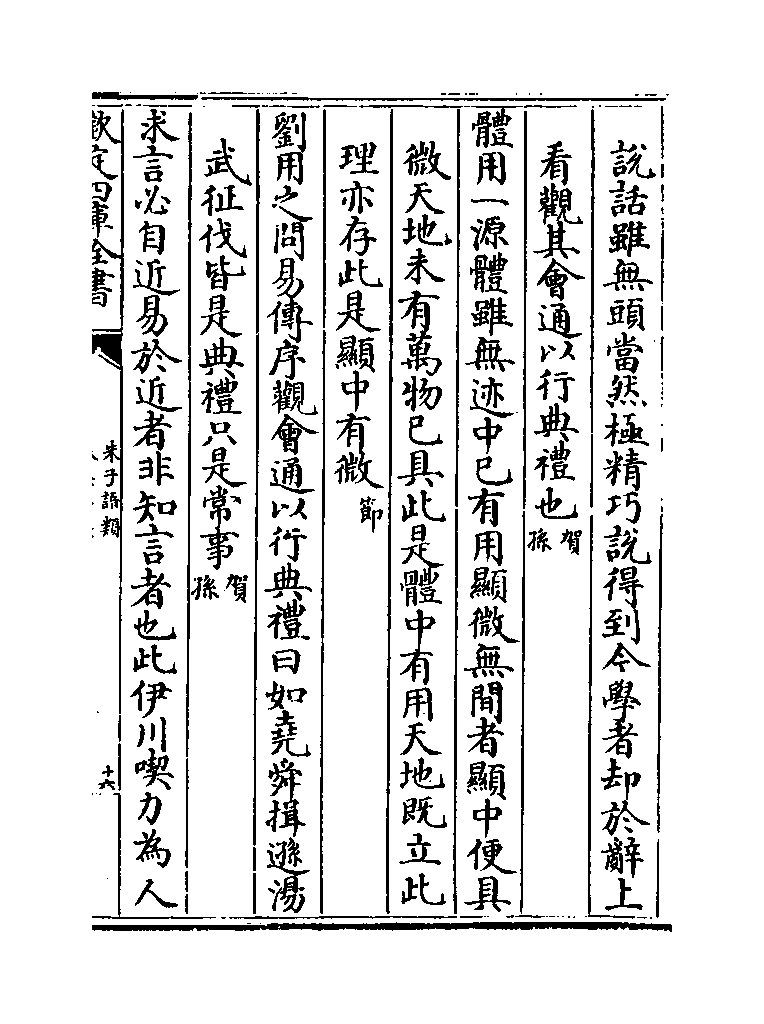 說話雖無頭當然極精巧說得到今學者却於辭上
看觀其會通以行典禮也賀孫
體用一源體雖無迹中已有用顯微無間者顯中便具
微天地未有萬物已具此是體中有用天地既立此
理亦存此是顯中有微節
劉用之問易傳序觀會通以行典禮曰如堯舜揖遜湯
武征伐皆是典禮只是常事賀孫
求言必自近易於近者非知言者也此伊川喫力為人
欽定四庫全書
朱子語類
十六